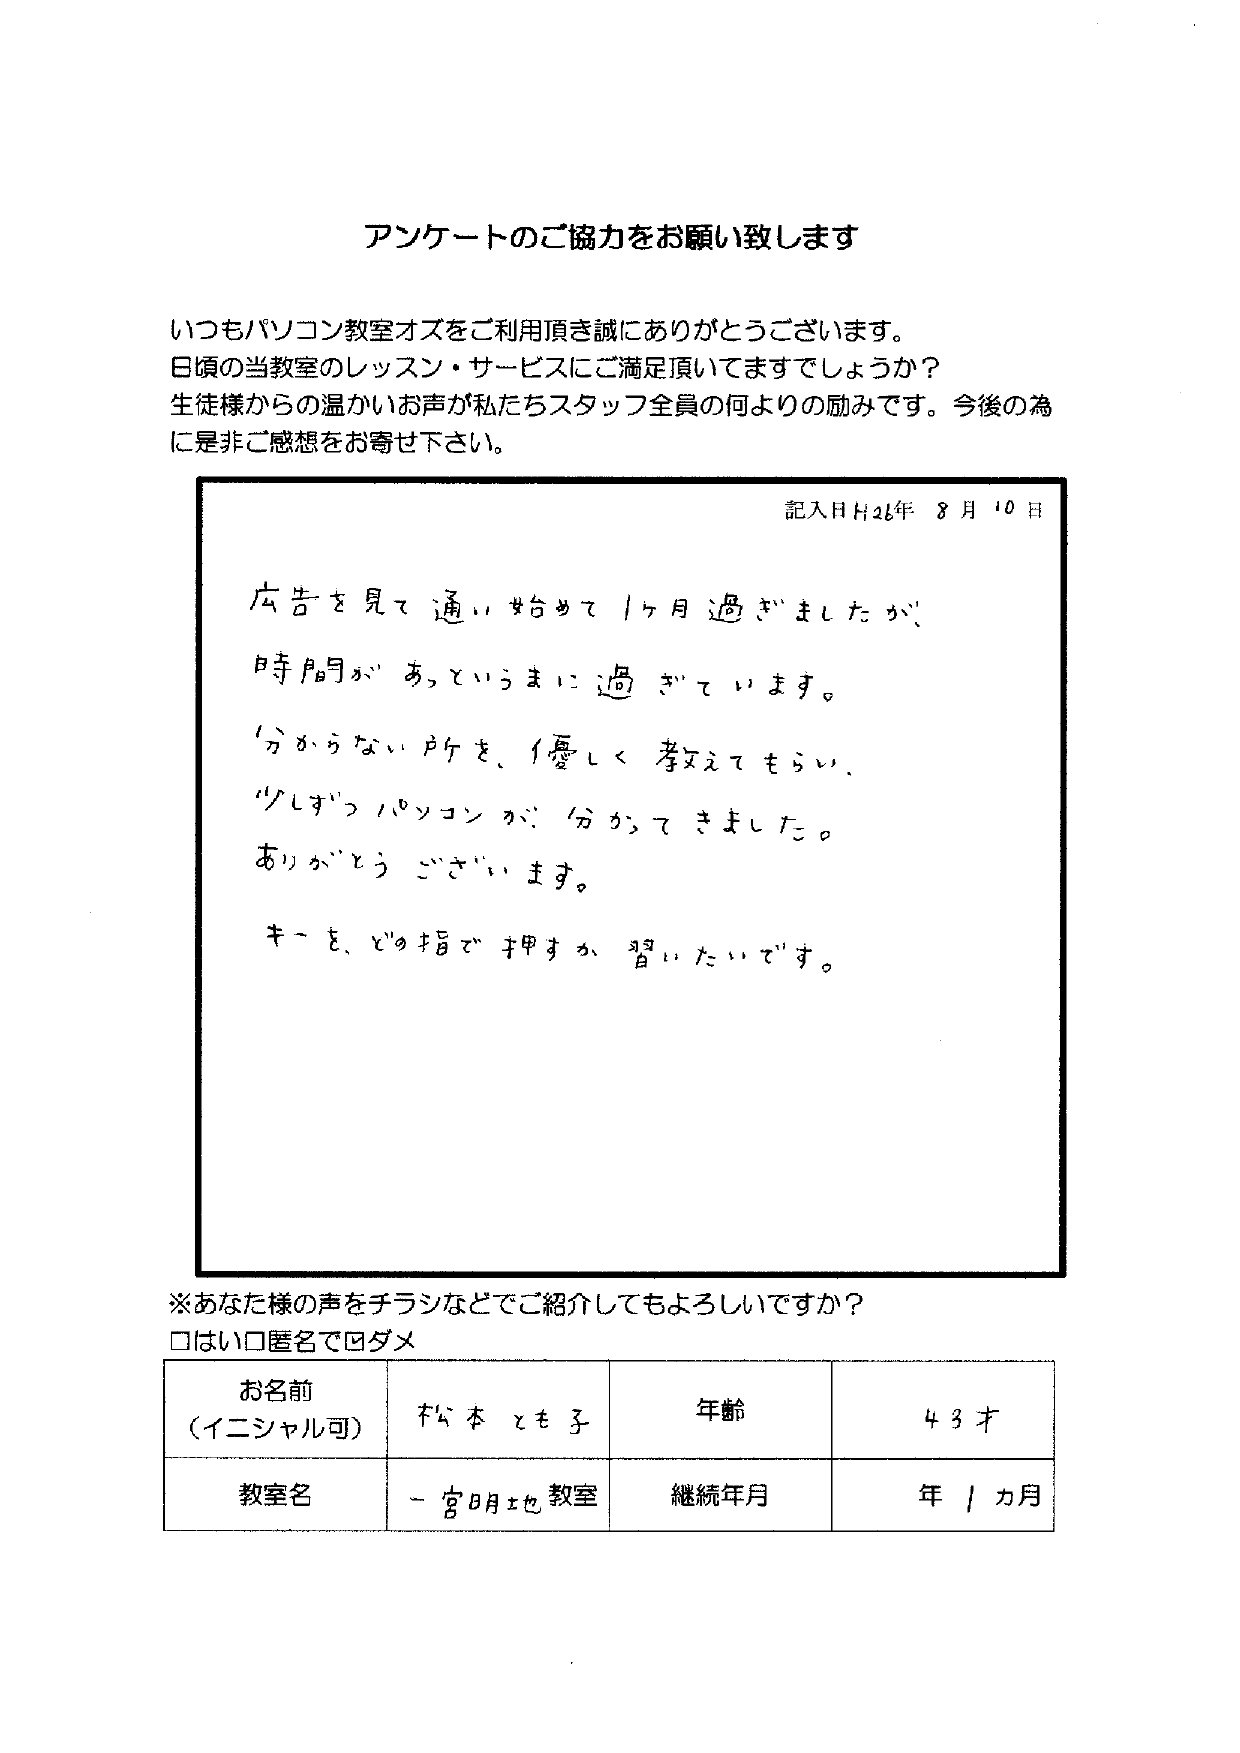 アンケートのご協力をお願い致します
いつもパソコン教室オズをご利用頂き誠にありがとうございます。
日頃の当教室のレッスン・サービスにご満足頂いてますでしょうか？
生徒様からの温かいお声が私たちスタッフ全員の何よりの励みです。今後の為
に是非ご感想をお寄せ下さい。
記入日H26年 8月 10日
広告を見て通い始めて1ヶ月過ぎましたが、
時間があっというまに過ぎています。
分からない所を、優しく教えてもらい、
少しずつパソコンが、分かってきました。
ありがとうございます。
キーを、どの指で押すか、習いたいです。
※あなた様の声をチラシなどでご紹介してもよろしいですか？
□はい□匿名で☑ダメ
お名前
（イニシャル可） 松本とも子 年齢 43才
教室名 一宮明地教室 継続年月 年 1カ月